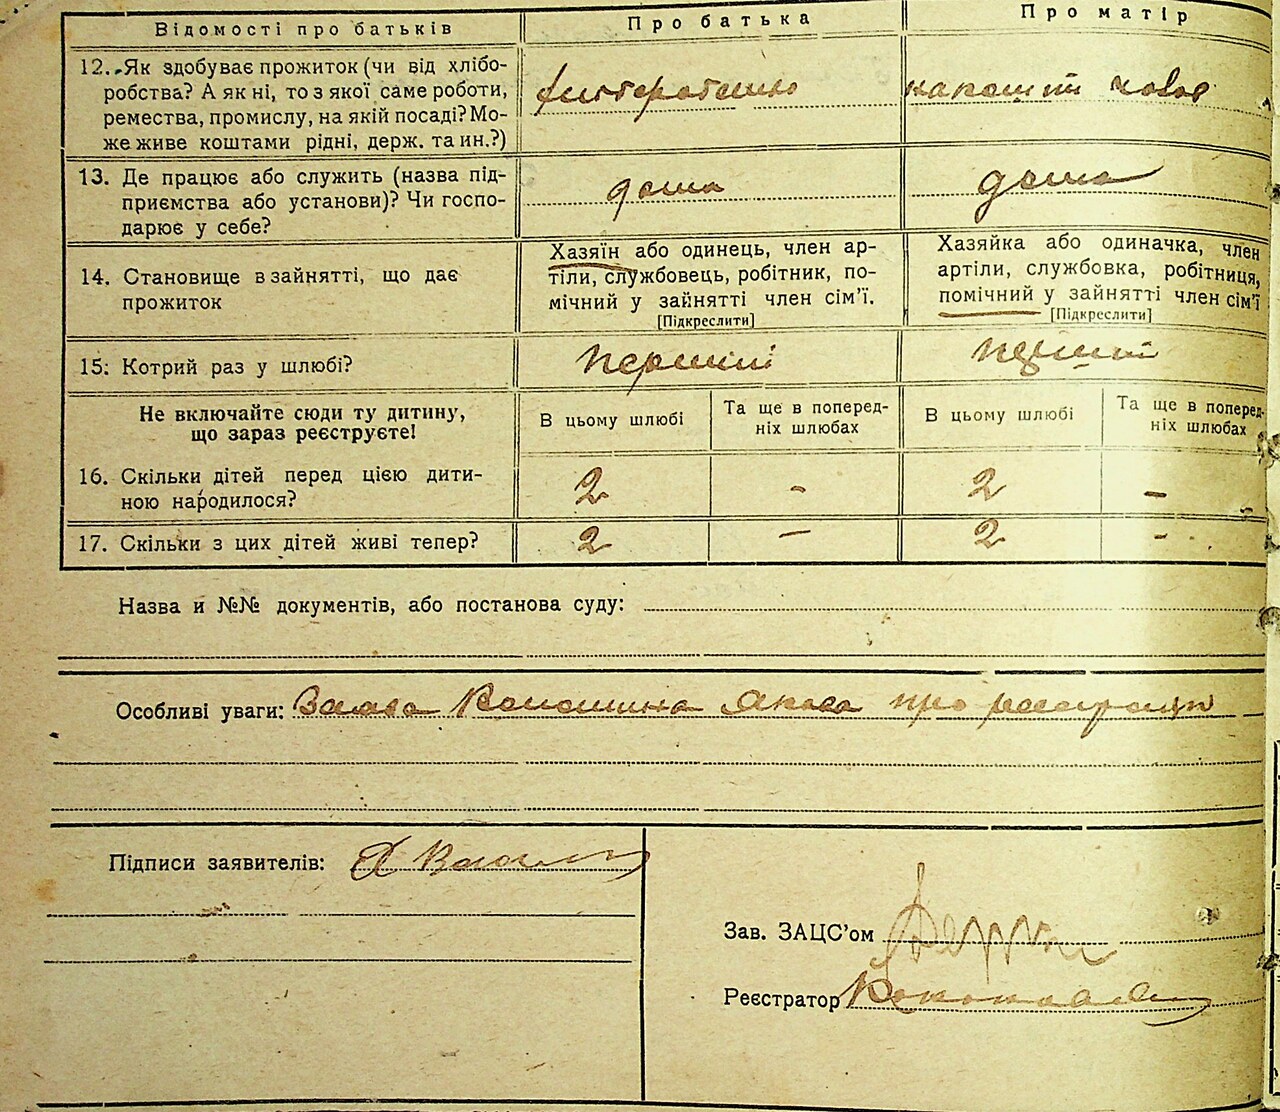 Відомості про батьків
Про батька
Про матір
12. Як здобуває прожиток (чи від хлібо-
робства? А як ні, то з якої саме роботи,
ремества, промислу, на якій посаді? Мо-
же живе коштами рідні, держ. та ин.?)
13. Де працює або служить (назва під-
приємства або установи)? Чи госпо-
дарює у себе?
дома
дома
14. Становище в зайнятті, що дає
прожиток
Хазяїн або одинець, член ар-
тіли, службовець, робітник, по-
мічний у зайнятті член сім'ї.
[Підкреслити]
Хазяйка або одиначка, член
артіли, службовка, робітниця,
помічний у зайнятті член сім'ї
[Підкреслити]
15: Котрий раз у шлюбі?
перший
перший
Не включайте сюди ту дитину,
що зараз реєструєте!
В цьому шлюбі
Та ще в поперед-
ніх шлюбах
В цьому шлюбі
Та ще в поперед-
ніх шлюбах
16. Скільки дітей перед цією дити-
ною народилося?
2
-
2
-
17. Скільки з цих дітей живі тепер?
2
-
2
-
Назва и №№ документів, або постанова суду:
Особливі уваги: Заява Волошина Якова про реєстрацію
Підписи заявителів:
Зав. ЗАЦС'ом
Реєстратор